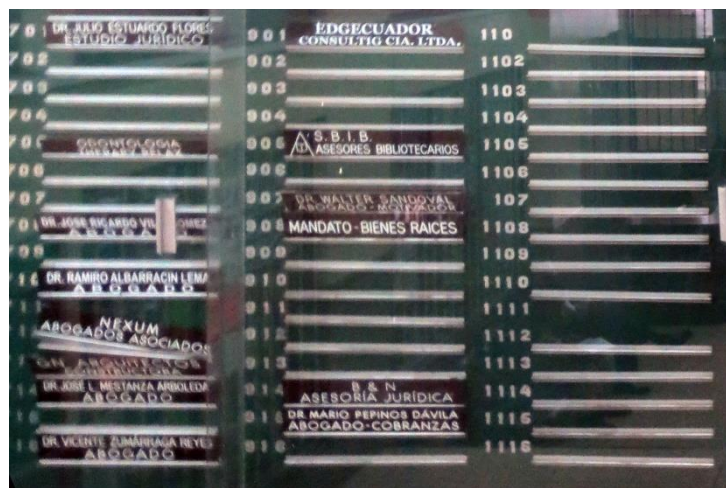 701 DR. JULIO ESTUARDO FLORES
ESTUDIO JURÍDICO
702
703
704
705 ODONTOLOGIA
THERAPY RELAX
706
707
708 DR. JOSE RICARDO
ABOGADO
709
710 DR. RAMIRO ALBARRACIN LEMA
ABOGADO
NEXUM
ABOGADOS ASOCIADOS
GN. ARQUITECTOS
CONSTRUCTORA
DR. JOSE L. MESTANZA ARBOLEDA
ABOGADO
DR. VICENTE ZUMÁRRAGA REYES
ABOGADO
901 EDGECUADOR
CONSULTIG CIA. LTDA.
902
903
904
905 S.B.I.B.
ASESORES BIBLIOTECARIOS
906
907 DR. WALTER SANDOVAL
ABOGADO - MOTIVADOR
908 MANDATO - BIENES RAICES
909
910
911
912
913
914 B & N
ASESORÍA JURÍDICA
915 DR. MARIO PEPINOS DÁVILA
ABOGADO-COBRANZAS
916
110
1102
1103
1104
1105
1106
107
1108
1109
1110
1111
1112
1113
1114
1115
1116